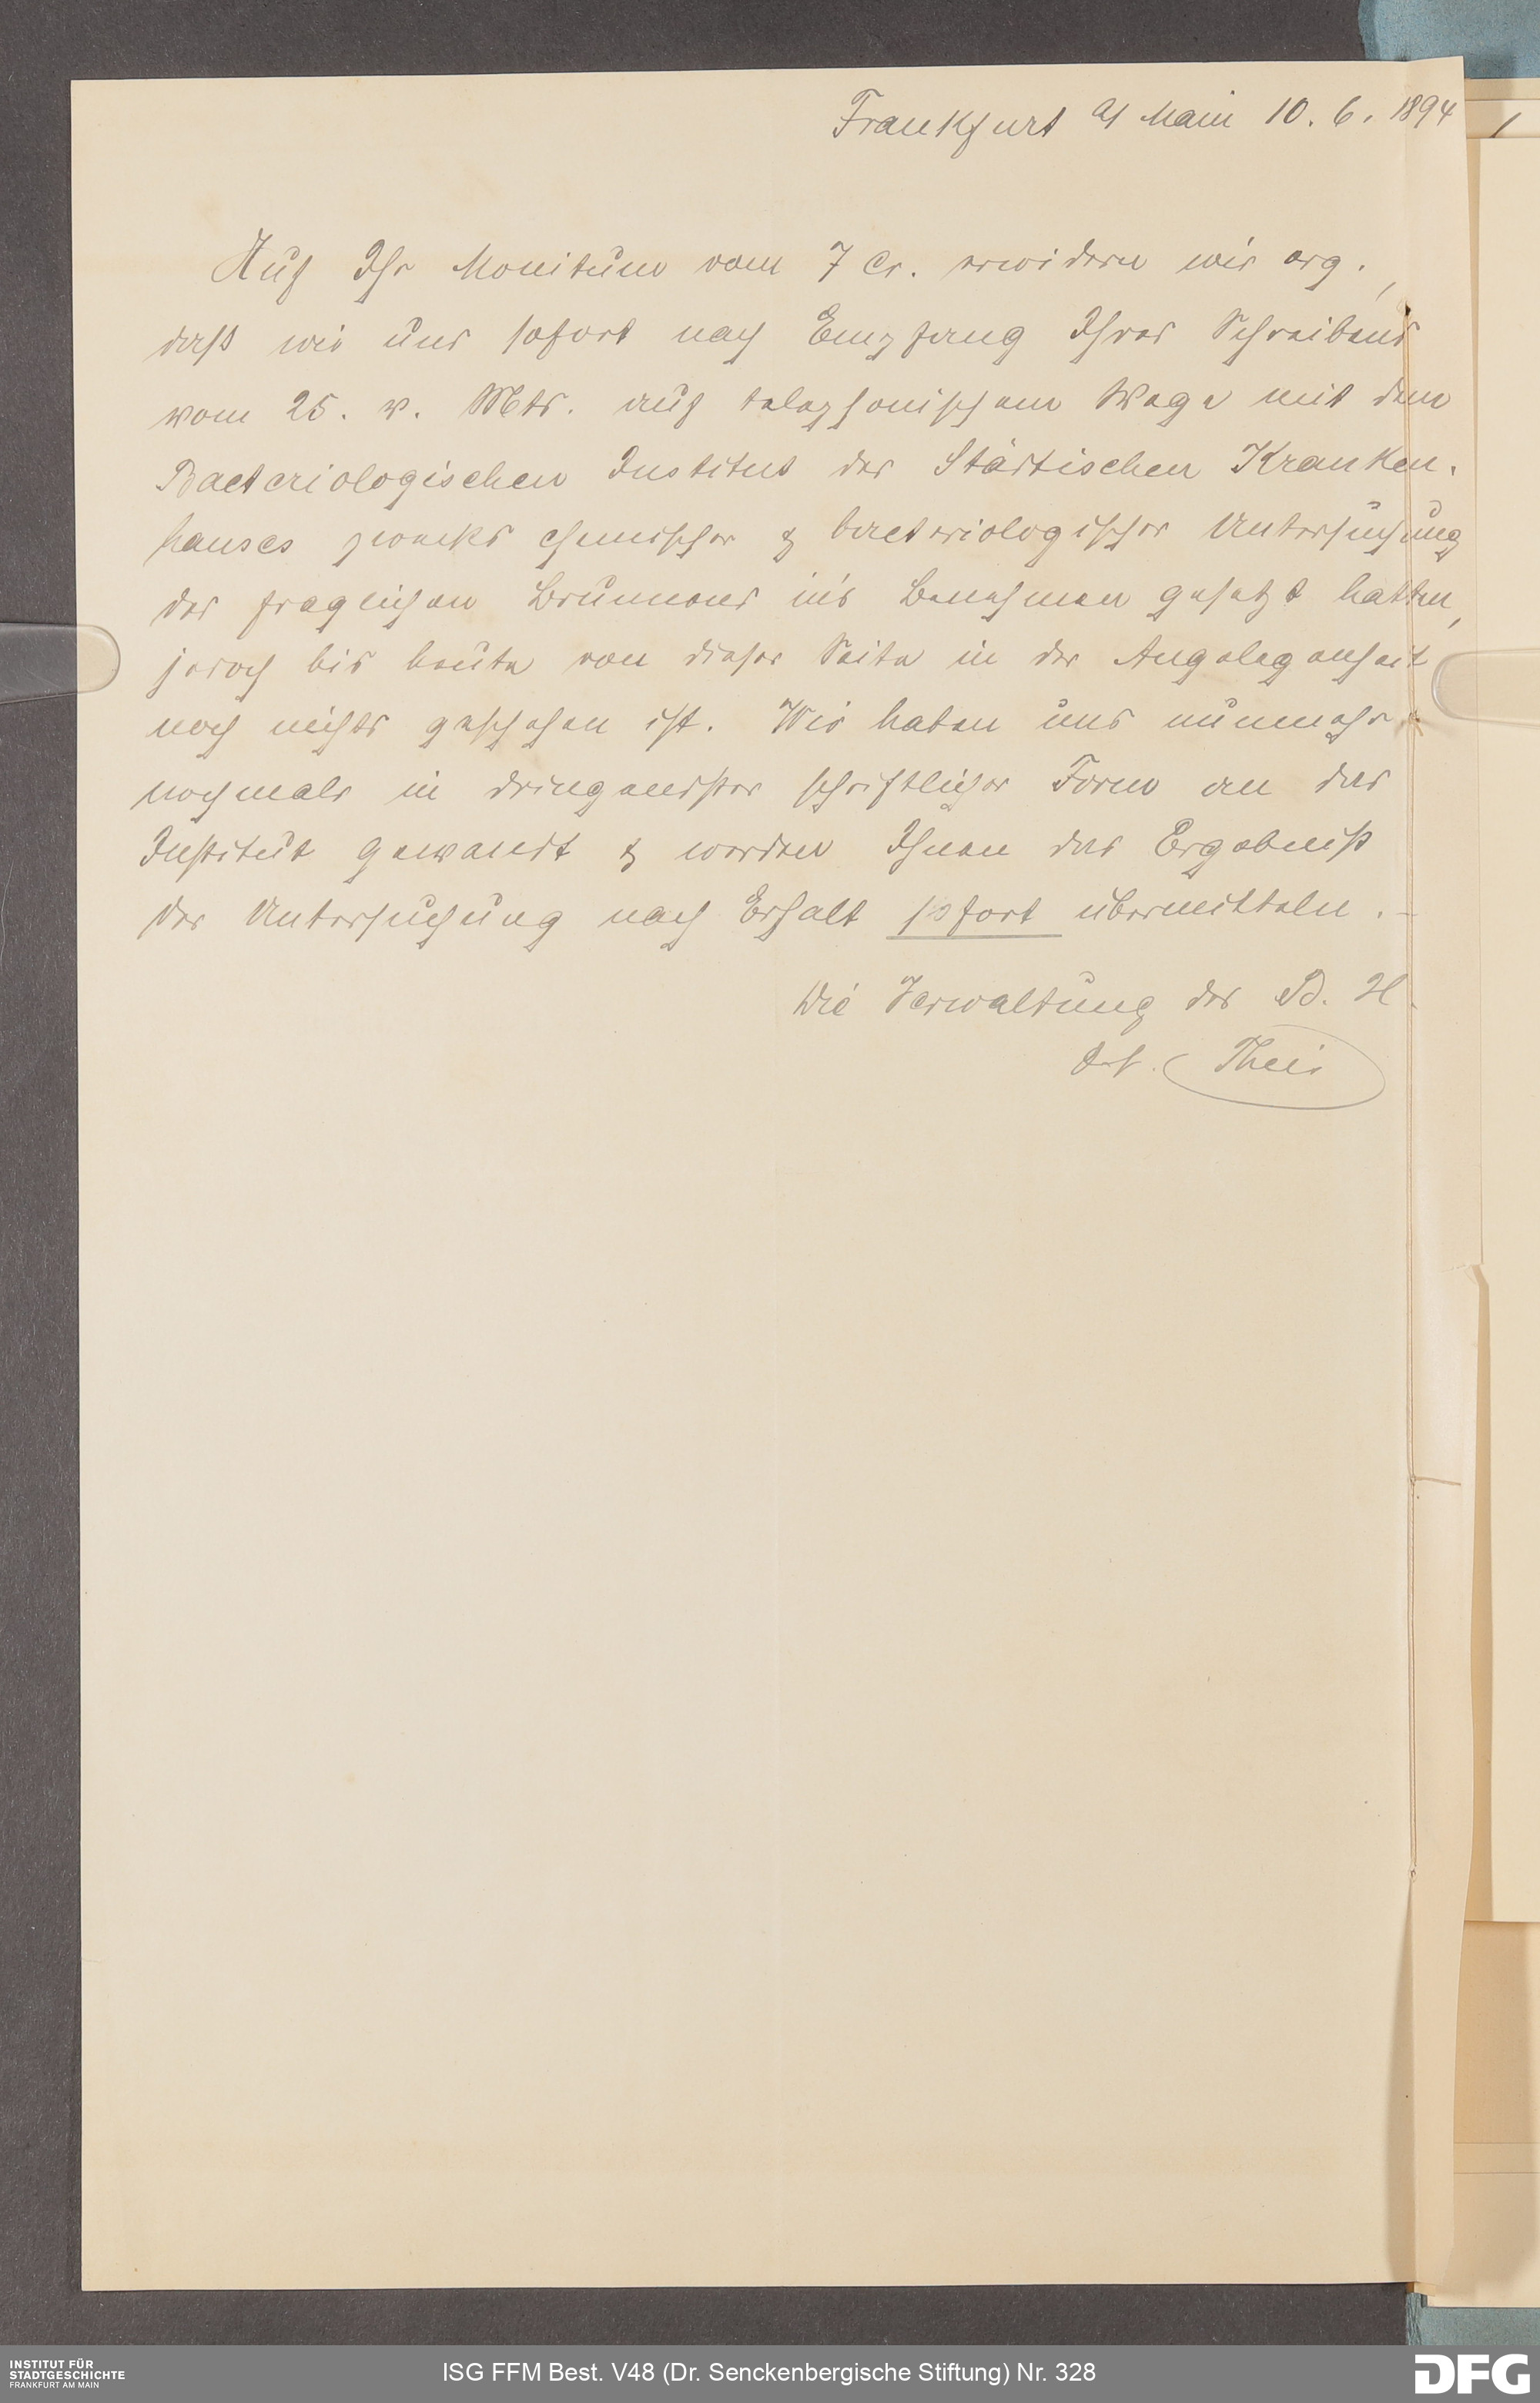 Frankfurt a/ Main 10. 6. 1894
Auf Ihr Monitum vom 7 Cr. erwidern wir erg.,
daß wir uns sofort nach Empfang Ihres Schreibens
vom 25. v. Mts. auf telephonischem Wege mit dem
Bacteriologischen Institut des Städtischen Kranken-
hauses zwecks chemischer & bacteriologischer Untersuchung
des fraglichen Brunnens in's Benehmen gesetzt hatten,
jedoch bis heute von dieser Seite in der Angelegenheit
noch nichts geschehen ist. Wir haben uns nunmehr
nochmals in dringendster schriftlicher Form an das
Institut gewandt & werden Ihnen das Ergebniß
der Untersuchung nach Erhalt sofort übermitteln. –
Die Verwaltung des B. H.
Theis
INSTITUT FÜR
STADTGESCHICHTE
FRANKFURT AM MAIN
ISG FFM Best. V48 (Dr. Senckenbergische Stiftung) Nr. 328
DFG